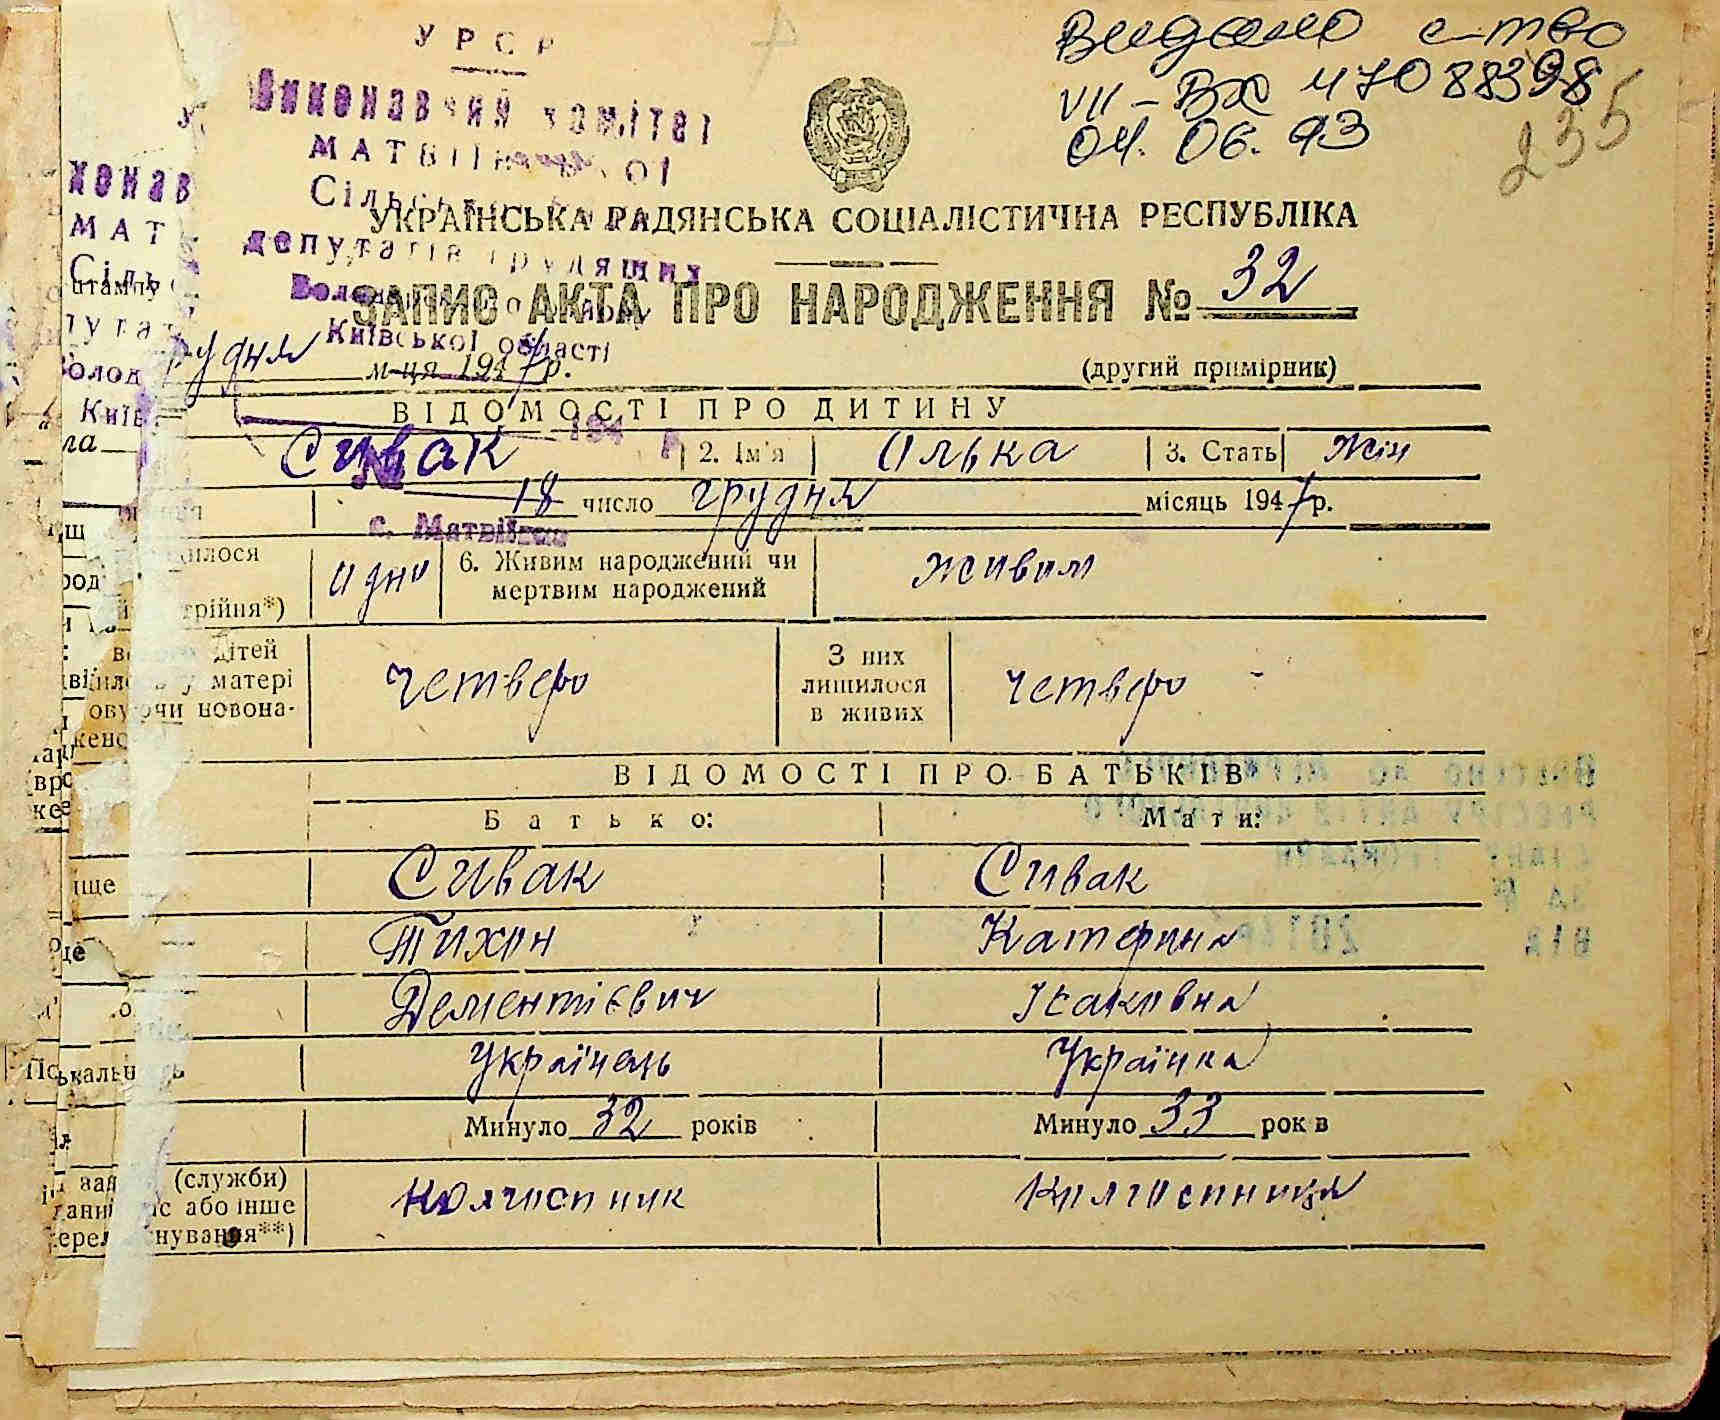 УРСР
Виконавчий комітет
МАТВІЇВСЬКОЇ
Сільської Ради
депутатів трудящих
Київської області
194 р
№
с. Матвіївка
Видано с-тво
VII-ВХ 47088398
04. 06. 93
235
УКРАЇНСЬКА РАДЯНСЬКА СОЦІАЛІСТИЧНА РЕСПУБЛІКА
ЗАПИС АКТА ПРО НАРОДЖЕННЯ № 32
грудня м-ця 1947 р.
(другий примірник)
ВІДОМОСТІ ПРО ДИТИНУ
Сивак 2. Ім'я Олька 3. Стать жін
18 число грудня місяць 1947 р.
одно 6. Живим народжений чи мертвим народжений живим
трійня*)
дітей у матері новона-
четверо З них лишилося в живих четверо
ВІДОМОСТІ ПРО БАТЬКІВ
Батько: Мати:
Сивак Сивак
Тихон Катерина
Дементієвич Ісаковна
Українець Українка
Минуло 32 років Минуло 33 рок в
(служби) або інше нування**)
Колгоспник Колгоспниця